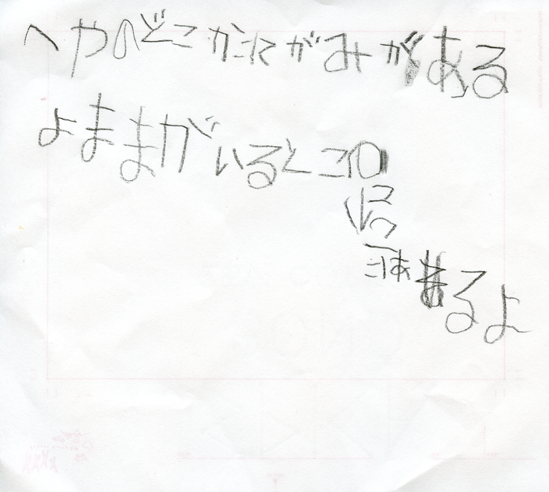 へやのどこかにてがみがある
よままがいるとこの
あるよ